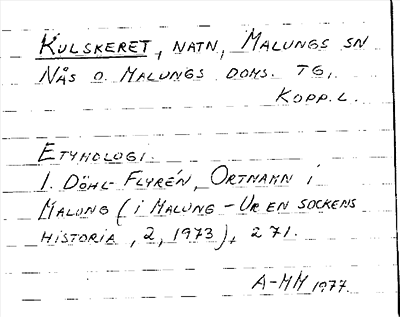 KULSKERET, NATN, MALUNGS SN
NÅS O. MALUNGS DOMS. TG,
KOPP. L.
ETYMOLOGI
1. DÖHL-FLYRÉN, ORTNAMN I
MALUNG (I MALUNG - UR EN SOCKENS
HISTORIA, 2, 1973), 271.
A-MM 1977.